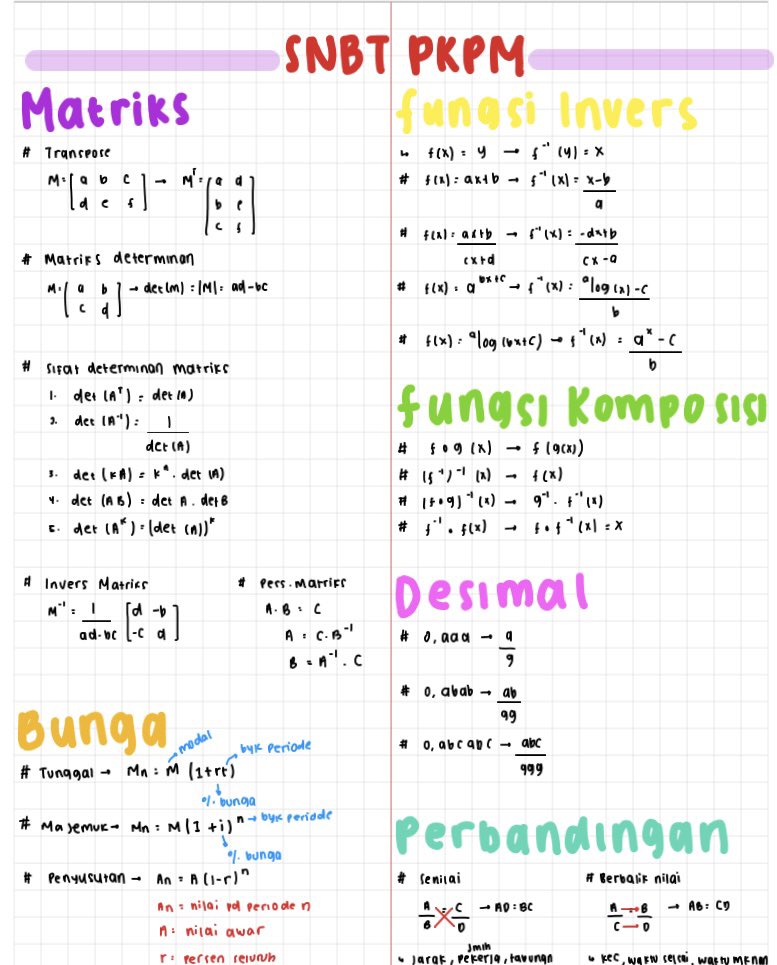 SNBT PKPM
Matriks
# Transpose
M = [a b c
d e f] → Mᵀ = [a d
b e
c f]
# Matriks determinan
M = [a b
c d] → det(m) = |M| = ad-bc
# Sifat determinan matriks
1. det (Aᵀ) = det (A)
2. det (A⁻¹) = 1
det (A)
3. det (kA) = kⁿ . det (A)
4. det (AB) = det A . det B
5. det (Aᵏ) = (det (A))ᵏ
# Invers Matriks
M⁻¹ = 1 [d -b
ad-bc -c a]
# Pers. matriks
A . B = C
A = C . B⁻¹
B = A⁻¹ . C
Bunga
modal
byk periode
# Tunggal → Mn = M (1+rt)
% bunga
# Majemuk → Mn = M (1 + i)ⁿ → byk periode
% bunga
# Penyusutan → An = A (1-r)ⁿ
An = nilai pd periode n
A = nilai awar
r = persen seluruh
fungsi Invers
↳ f(x) = y → f⁻¹ (y) = x
# f(x) = ax+b → f⁻¹ (x) = x-b
a
# f(x) = ax+b → f⁻¹(x) = -dx+b
cx+d cx-a
# f(x) = a^bx+c → f⁻¹(x) = ᵃlog (x) - c
b
# f(x) = ᵃlog (bx+c) → f⁻¹ (x) = aˣ - c
b
fungsi Komposisi
# f ∘ g (x) → f (g(x))
# (f⁻¹)⁻¹ (x) → f (x)
# (f∘g)⁻¹ (x) → g⁻¹ . f⁻¹ (x)
# f⁻¹ ∘ f(x) → f ∘ f⁻¹ (x) = x
Desimal
# 0, aaa → a
9
# 0, abab → ab
99
# 0, abc abc → abc
999
Perbandingan
# Senilai
A = C → AD = BC
B D
jmlh
↳ Jarak, pekerja, tabungan
# Berbalik nilai
A → B → AB = CD
C → D
↳ kec, waktu selsai, waktu